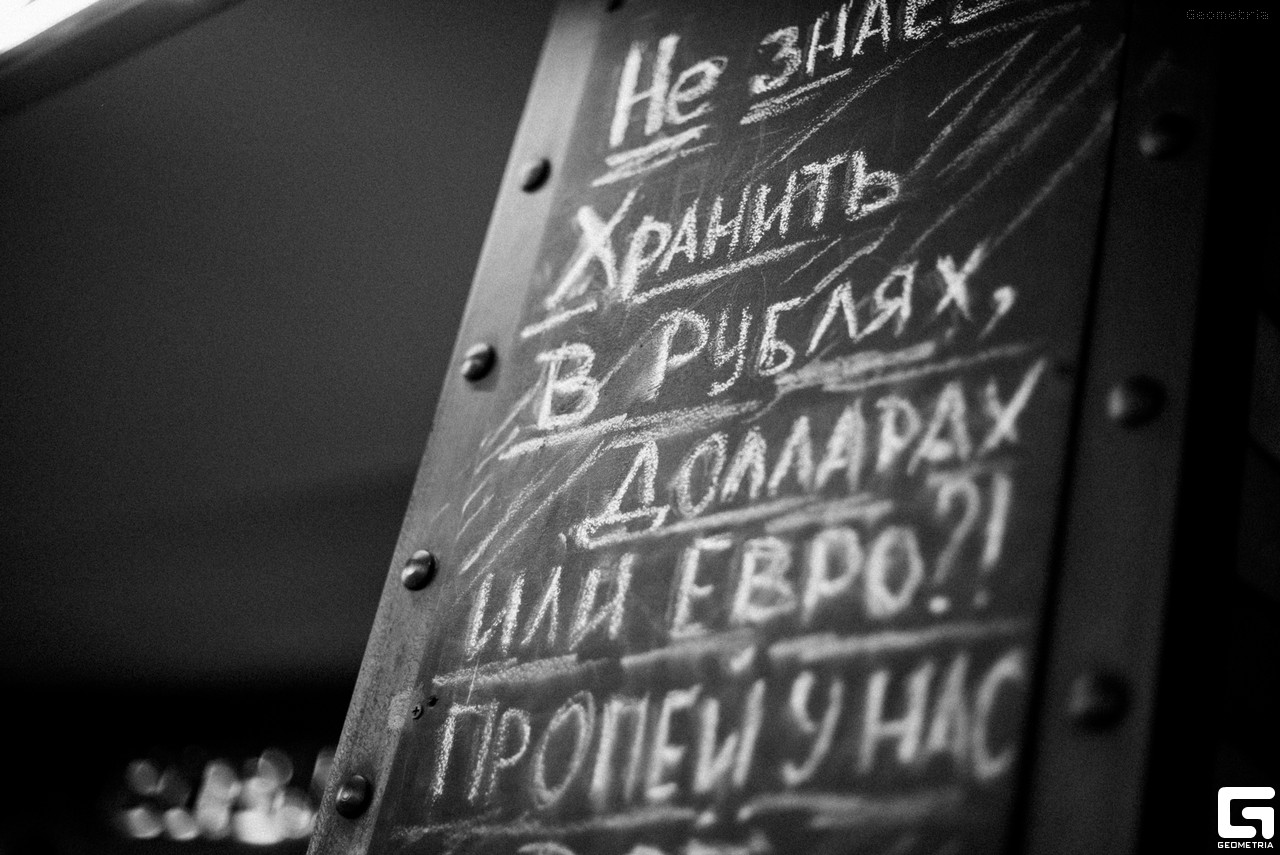 Geometria
Не знаеš
Хранить
В Рублях,
Долларах
или Евро?!
Пропей у нас
GEOMETRIA